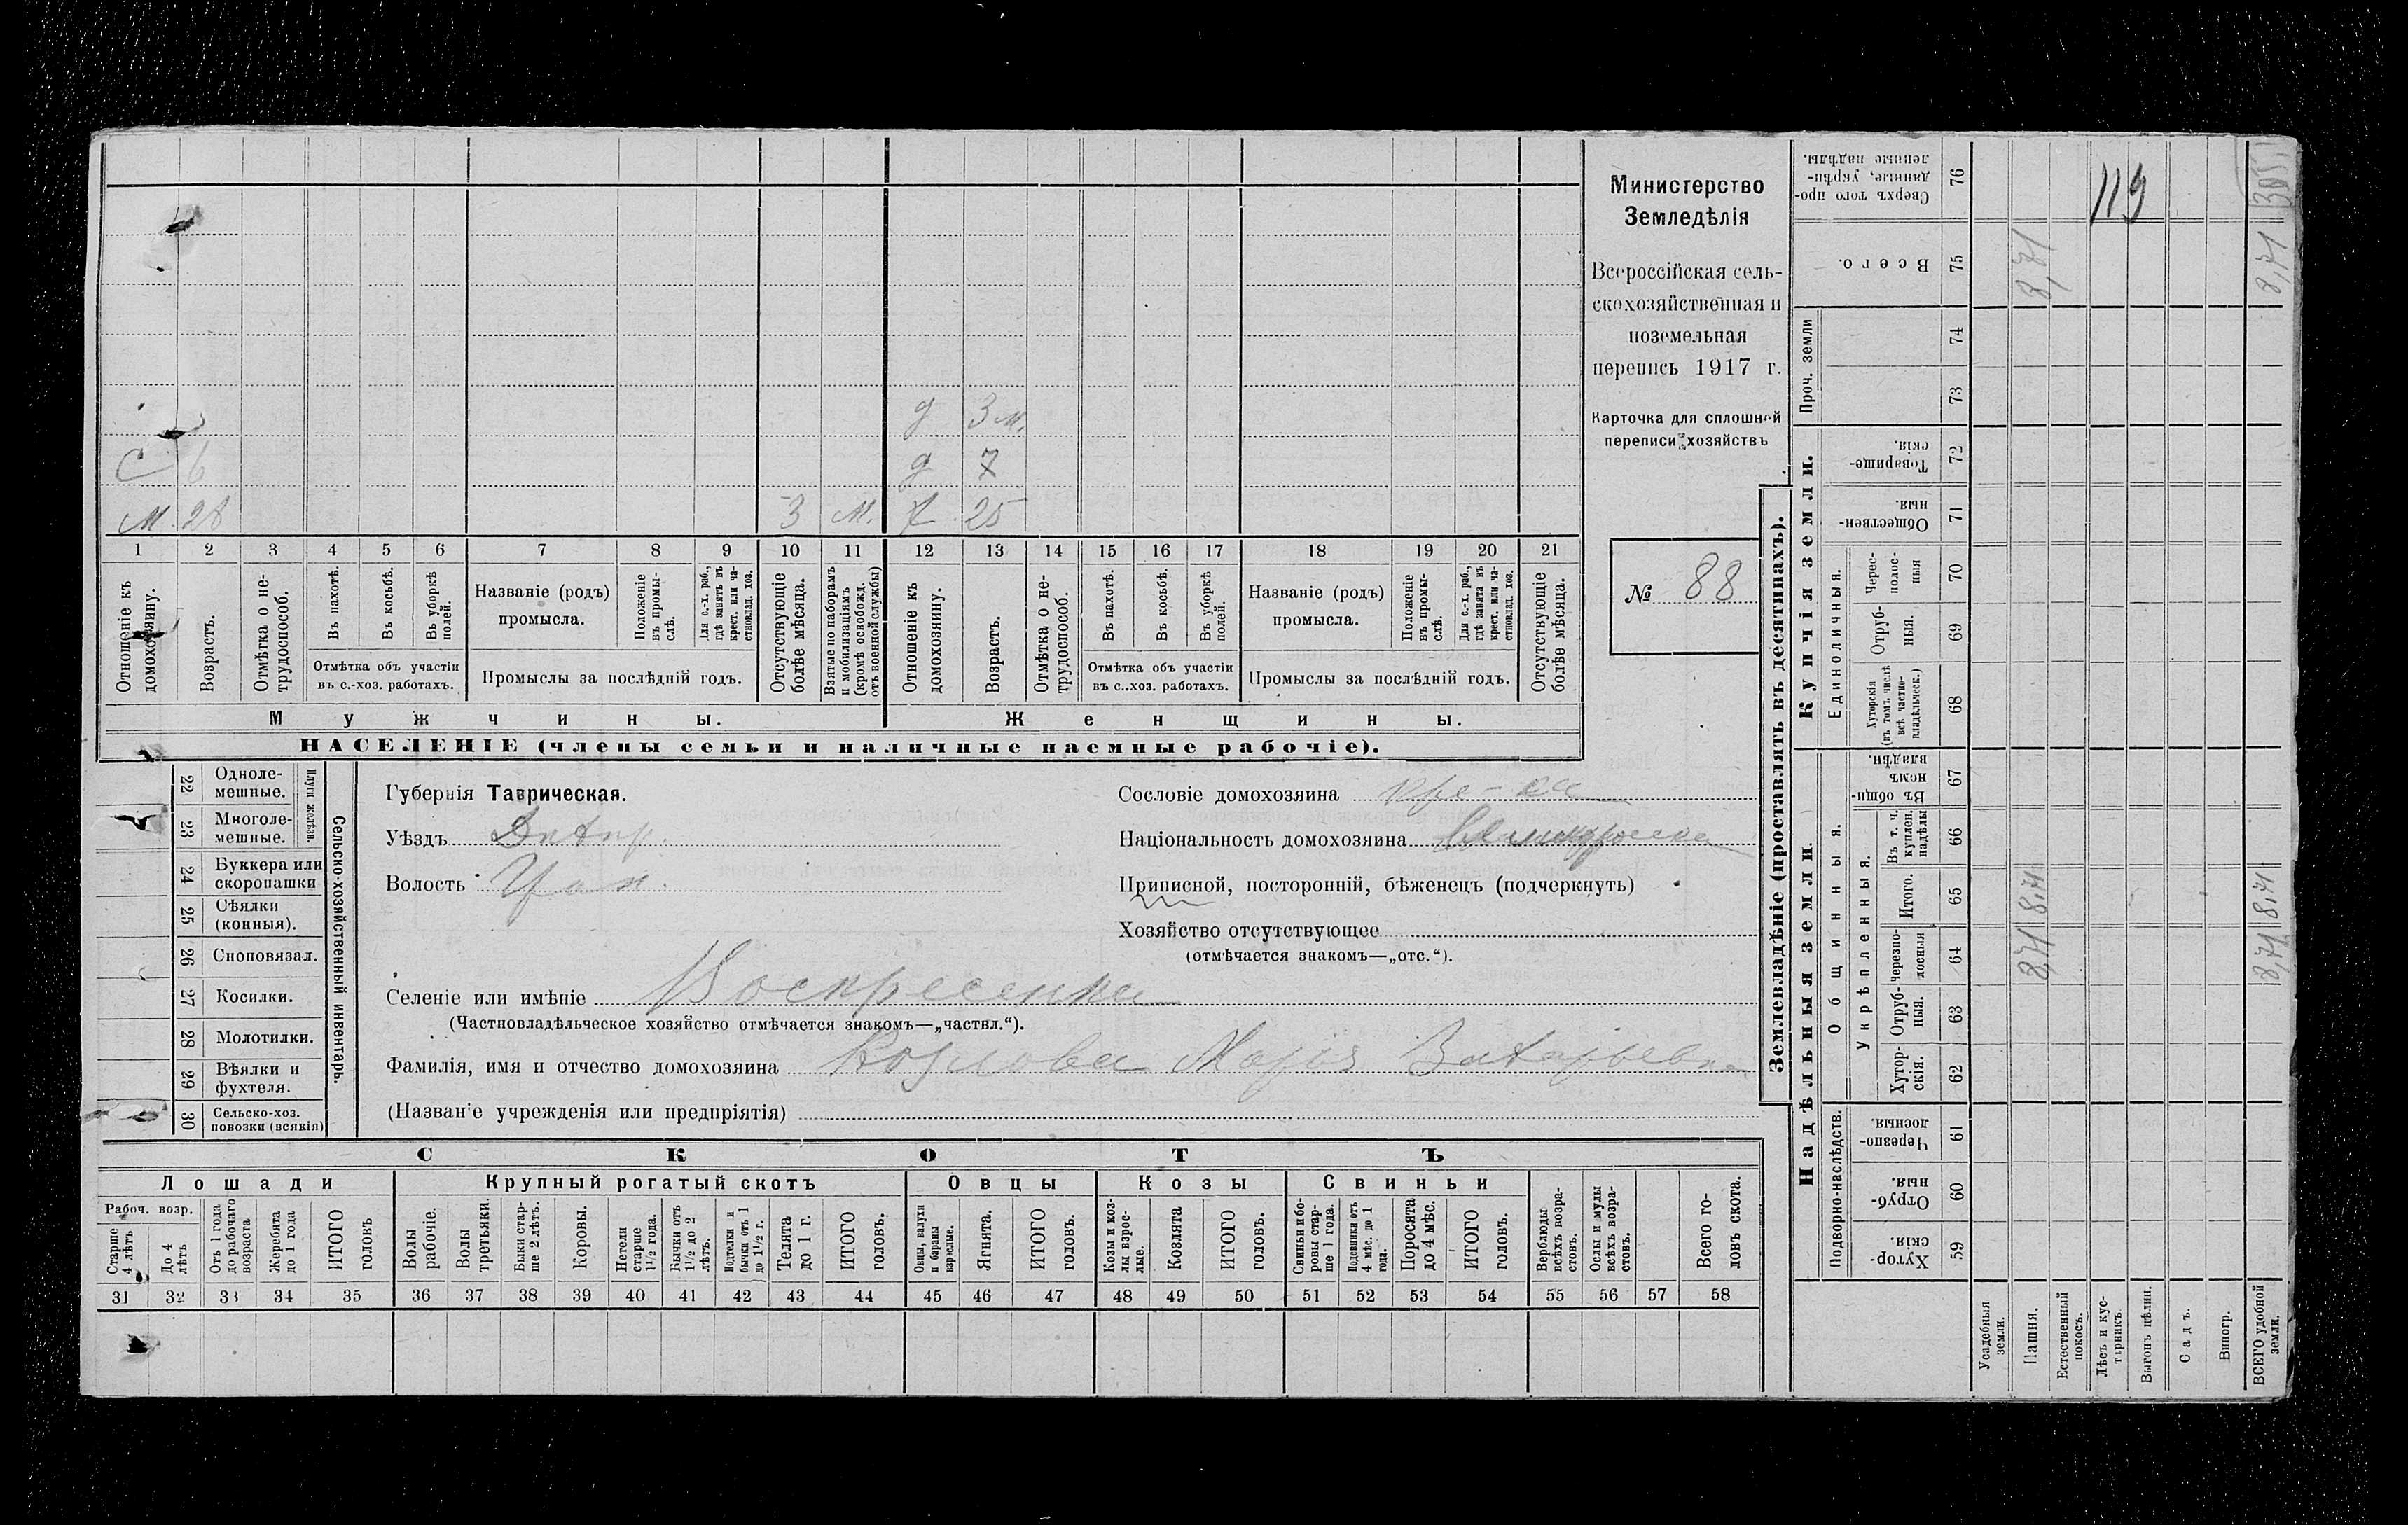 Министерство
Земледѣлія
Всероссійская сель-
скохозяйственная и
поземельная
перепись 1917 г.
Карточка для сплошной
переписи хозяйствъ
№ 88
д 3 м.
С 6 д 7
М. 28 3 М. 25
1 2 3 4 5 6 7 8 9 10 11 12 13 14 15 16 17 18 19 20 21
Отношеніе къ домохозяину.
Возрастъ.
Отмѣтка о не-трудоспособ.
Въ пахотѣ.
Въ косьбѣ.
Въ уборкѣ полей.
Отмѣтка объ участіи
въ с.-хоз. работахъ.
Названіе (родъ)
промысла.
Положеніе въ промы-слѣ.
Для с.-х. раб., гдѣ занятъ въ крест. или ча-стновлад. хоз.
Промыслы за послѣдній годъ.
Отсутствующіе болѣе мѣсяца.
Взятые по наборамъ и мобилизаціямъ (кромѣ освобожд. отъ военной службы)
Отношеніе къ домохозяину.
Возрастъ.
Отмѣтка о не-трудоспособ.
Въ пахотѣ.
Въ косьбѣ.
Въ уборкѣ полей.
Отмѣтка объ участіи
въ с..хоз. работахъ.
Названіе (родъ)
промысла.
Положеніе въ промы-слѣ.
Для с.-х. раб., гдѣ занята въ крест. или ча-стновлад. хоз.
Промыслы за послѣдній годъ.
Отсутствующіе болѣе мѣсяца.
Мужчины.
Женщины.
НАСЕЛЕНІЕ (члены семьи и наличные наемные рабочіе).
Сельско-хозяйственный инвентарь.
Плуги желѣзн.
22 Одноле-мешные.
23 Многоле-мешные.
24 Буккера или скоропашки
25 Сѣялки (конныя).
26 Сноповязал.
27 Косилки.
28 Молотилки.
29 Вѣялки и фухтеля.
30 Сельско-хоз. повозки (всякія)
Губернія Таврическая.
Уѣздъ Днѣпр.
Волость
Сословіе домохозяина кре-ка
Національность домохозяина Великоросска
Приписной, посторонній, бѣженецъ (подчеркнуть)
Хозяйство отсутствующее
(отмѣчается знакомъ—„отс.“).
Селеніе или имѣніе Воскресенка
(Частновладѣльческое хозяйство отмѣчается знакомъ—„частвл.“).
Фамилія, имя и отчество домохозяина Козлова Марія
(Названіе учрежденія или предпріятія)
СКОТЪ
Лошади
Крупный рогатый скотъ
Овцы
Козы
Свиньи
Рабоч. возр.
Старше 4 лѣтъ
До 4 лѣтъ
Отъ 1 года до рабочаго возраста
Жеребята до 1 года
ИТОГО головъ
Волы рабочіе.
Волы третьяки.
Быки стар-ше 2 лѣтъ.
Коровы.
Нетели старше 1 1/2 года.
Бычки отъ 1 1/2 до 2 лѣтъ.
Подтелки и бычки отъ 1 до 1 1/2 г.
Телята до 1 г.
ИТОГО головъ.
Овцы, валухи и бараны взрослые.
Ягнята.
ИТОГО головъ.
Козы и коз-лы взрос-лые.
Козлята
ИТОГО головъ.
Свиньи и бо-ровы стар-ше 1 года.
Подсвинки отъ 4 мѣс. до 1 года.
Поросята до 4 мѣс.
ИТОГО головъ.
Верблюды всѣхъ возра-стовъ.
Ослы и мулы всѣхъ возра-стовъ.
Всего го-ловъ скота.
31 32 33 34 35 36 37 38 39 40 41 42 43 44 45 46 47 48 49 50 51 52 53 54 55 56 57 58
Землевладѣніе (проставлять въ десятинахъ).
Надѣльныя земли.
Купчія земли.
Проч. земли
Подворно-наслѣдств.
Общинныя.
Укрѣпленныя.
Единоличныя.
Сверхъ того про-данные, укрѣп-ленные надѣлы. 76 119
Всего. 75 8,71 8,71
74
73
Товарище-скія. 72
Обществен-ныя. 71
Черес-полос-ныя 70
Отруб-ныя. 69
Хуторскія (въ томъ числѣ всѣ частно-владѣльческ.) 68
Въ общи-номъ владѣн. 67
Въ т. ч. куплен. надѣлы 66
Итого. 65 8,71 8,71
Черезпо-лосныя 64 8,71 8,71
Отруб-ныя. 63
Хутор-скія. 62
Черезпо-лосныя. 61
Отруб-ныя. 60
Хутор-скія. 59
Усадебныя земли.
Пашня.
Естественный покосъ.
Лѣсъ и кус-тарникъ
Выгонъ цѣлин.
Садъ.
Виногр.
ВСЕГО удобной земли.